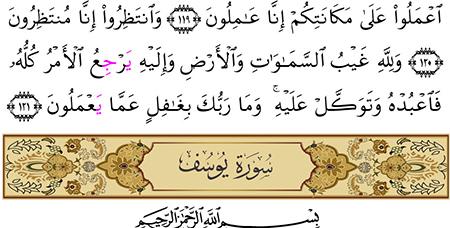 ٱعۡمَلُواْ عَلَىٰ مَكَانَتِكُمۡ إِنَّا عَٰمِلُونَ ١١٩ وَٱنتَظِرُوٓاْ إِنَّا مُنتَظِرُونَ
١٢٠ وَلِلَّهِ غَيۡبُ ٱلسَّمَٰوَٰتِ وَٱلۡأَرۡضِ وَإِلَيۡهِ يَرۡجِعُ ٱلۡأَمۡرُ كُلُّهُۥ
فَٱعۡبُدۡهُ وَتَوَكَّلۡ عَلَيۡهِۚ وَمَا رَبُّكَ بِغَٰفِلٍ عَمَّا يَعۡمَلُونَ ١٢١
سُورَةُ يُوسُف
بِسۡمِ ٱللَّهِ ٱلرَّحۡمَٰنِ ٱلرَّحِيمِ